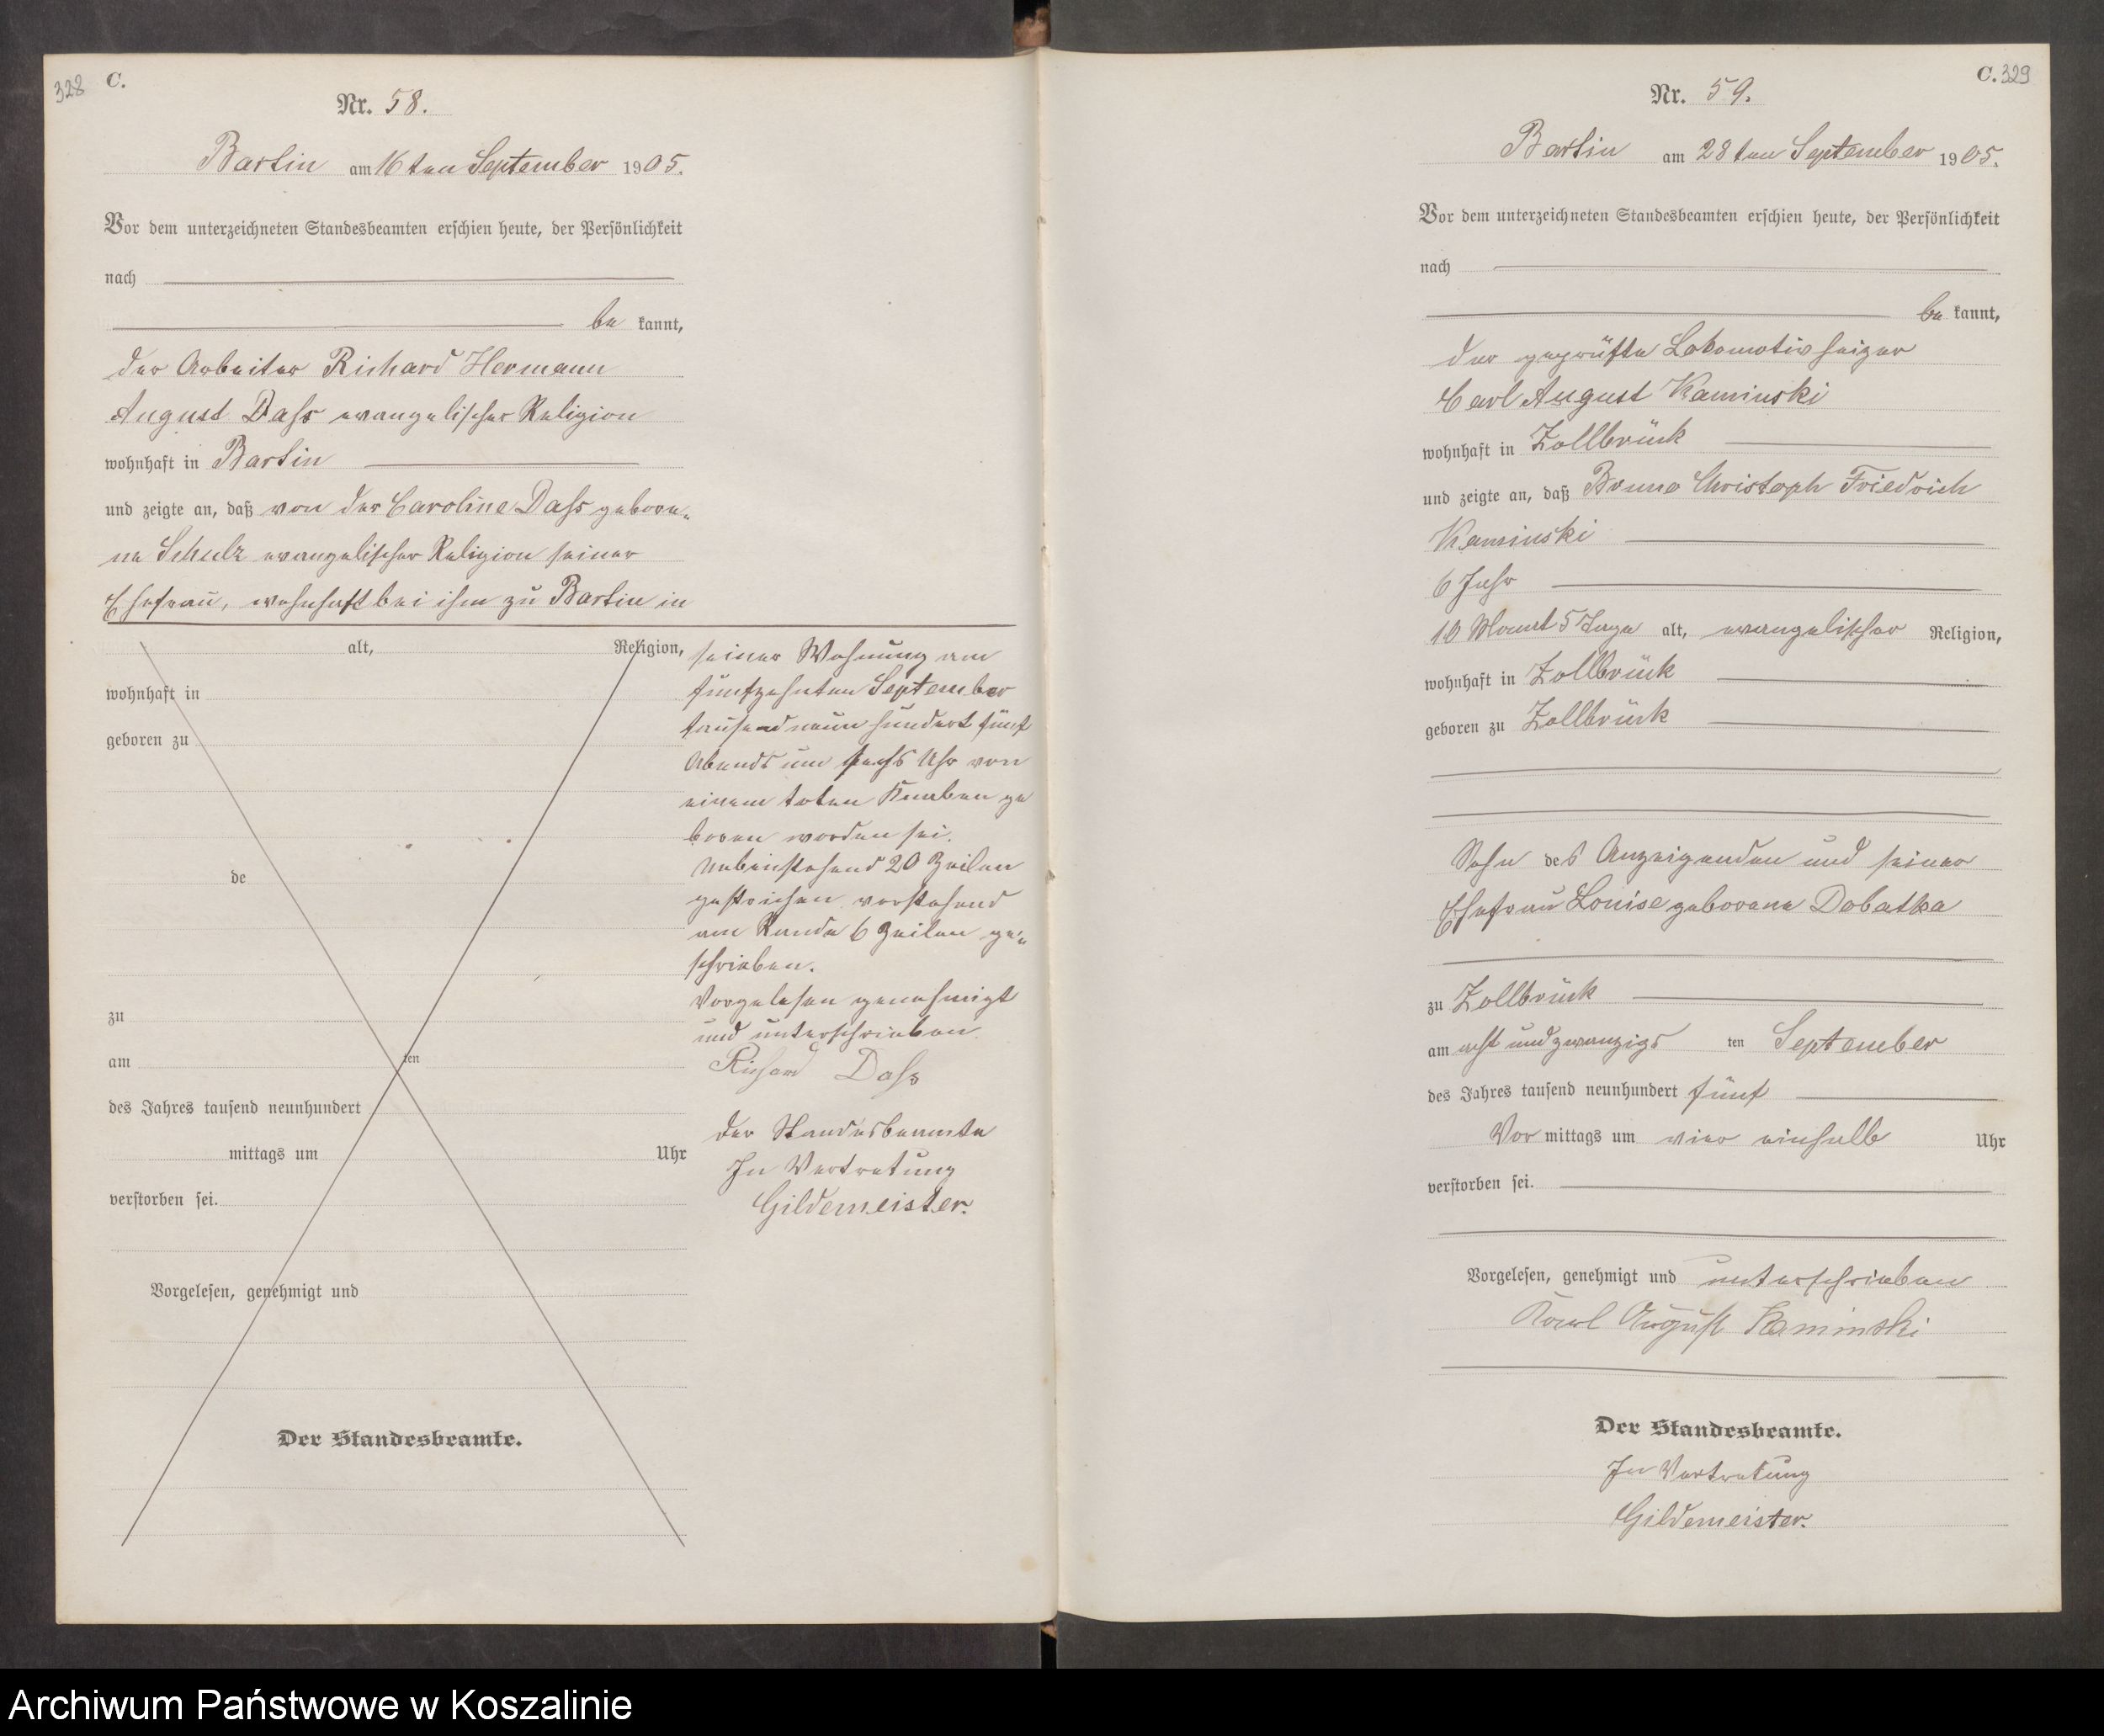 328 C.
Nr. 58.
Bartin am 16ten September 1905.
Vor dem unterzeichneten Standesbeamten erschien heute, der Persönlichkeit
nach
be kannt,
der Arbeiter Richard Hermann
August Dass evangelischer Religion
wohnhaft in Bartin
und zeigte an, daß von der Caroline Dass gebore-
ne Schulz evangelischer Religion seiner
Ehefrau, wohnhaft bei ihm zu Bartin in
alt, Religion,
wohnhaft in
geboren zu
de
zu
am ten
des Jahres tausend neunhundert
mittags um Uhr
verstorben sei.
Vorgelesen, genehmigt und
Der Standesbeamte.
seiner Wohnung am
fünfzehnten September
tausend neun hundert fünf
Abends um sechs Uhr von
einem toten Knaben ge
boren worden sei.
Nebenstehend 20 Zeilen
gestrichen vorstehend
am Rande 6 Zeilen ge-
schrieben.
Vorgelesen genehmigt
und unterschrieben
Richard Dass
Der Standesbeamte
In Vertretung
Gildemeister.
C. 329
Nr. 59.
Bartin am 28ten September 1905.
Vor dem unterzeichneten Standesbeamten erschien heute, der Persönlichkeit
nach
be kannt,
der geprüfte Lokomotivheizer
Carl August Kaminski
wohnhaft in Zollbrück
und zeigte an, daß Bruno Christoph Friedrich
Kaminski
6 Jahr
10 Monat 5 Tage alt, evangelischer Religion,
wohnhaft in Zollbrück
geboren zu Zollbrück
Sohn des Anzeigenden und seiner
Ehefrau Louise geborene Dobatka
zu Zollbrück
am acht und zwanzigs ten September
des Jahres tausend neunhundert fünf
Vor mittags um vier einhalb Uhr
verstorben sei.
Vorgelesen, genehmigt und unterschrieben
Karl August Kaminski
Der Standesbeamte.
In Vertretung
Gildemeister.
Archiwum Państwowe w Koszalinie